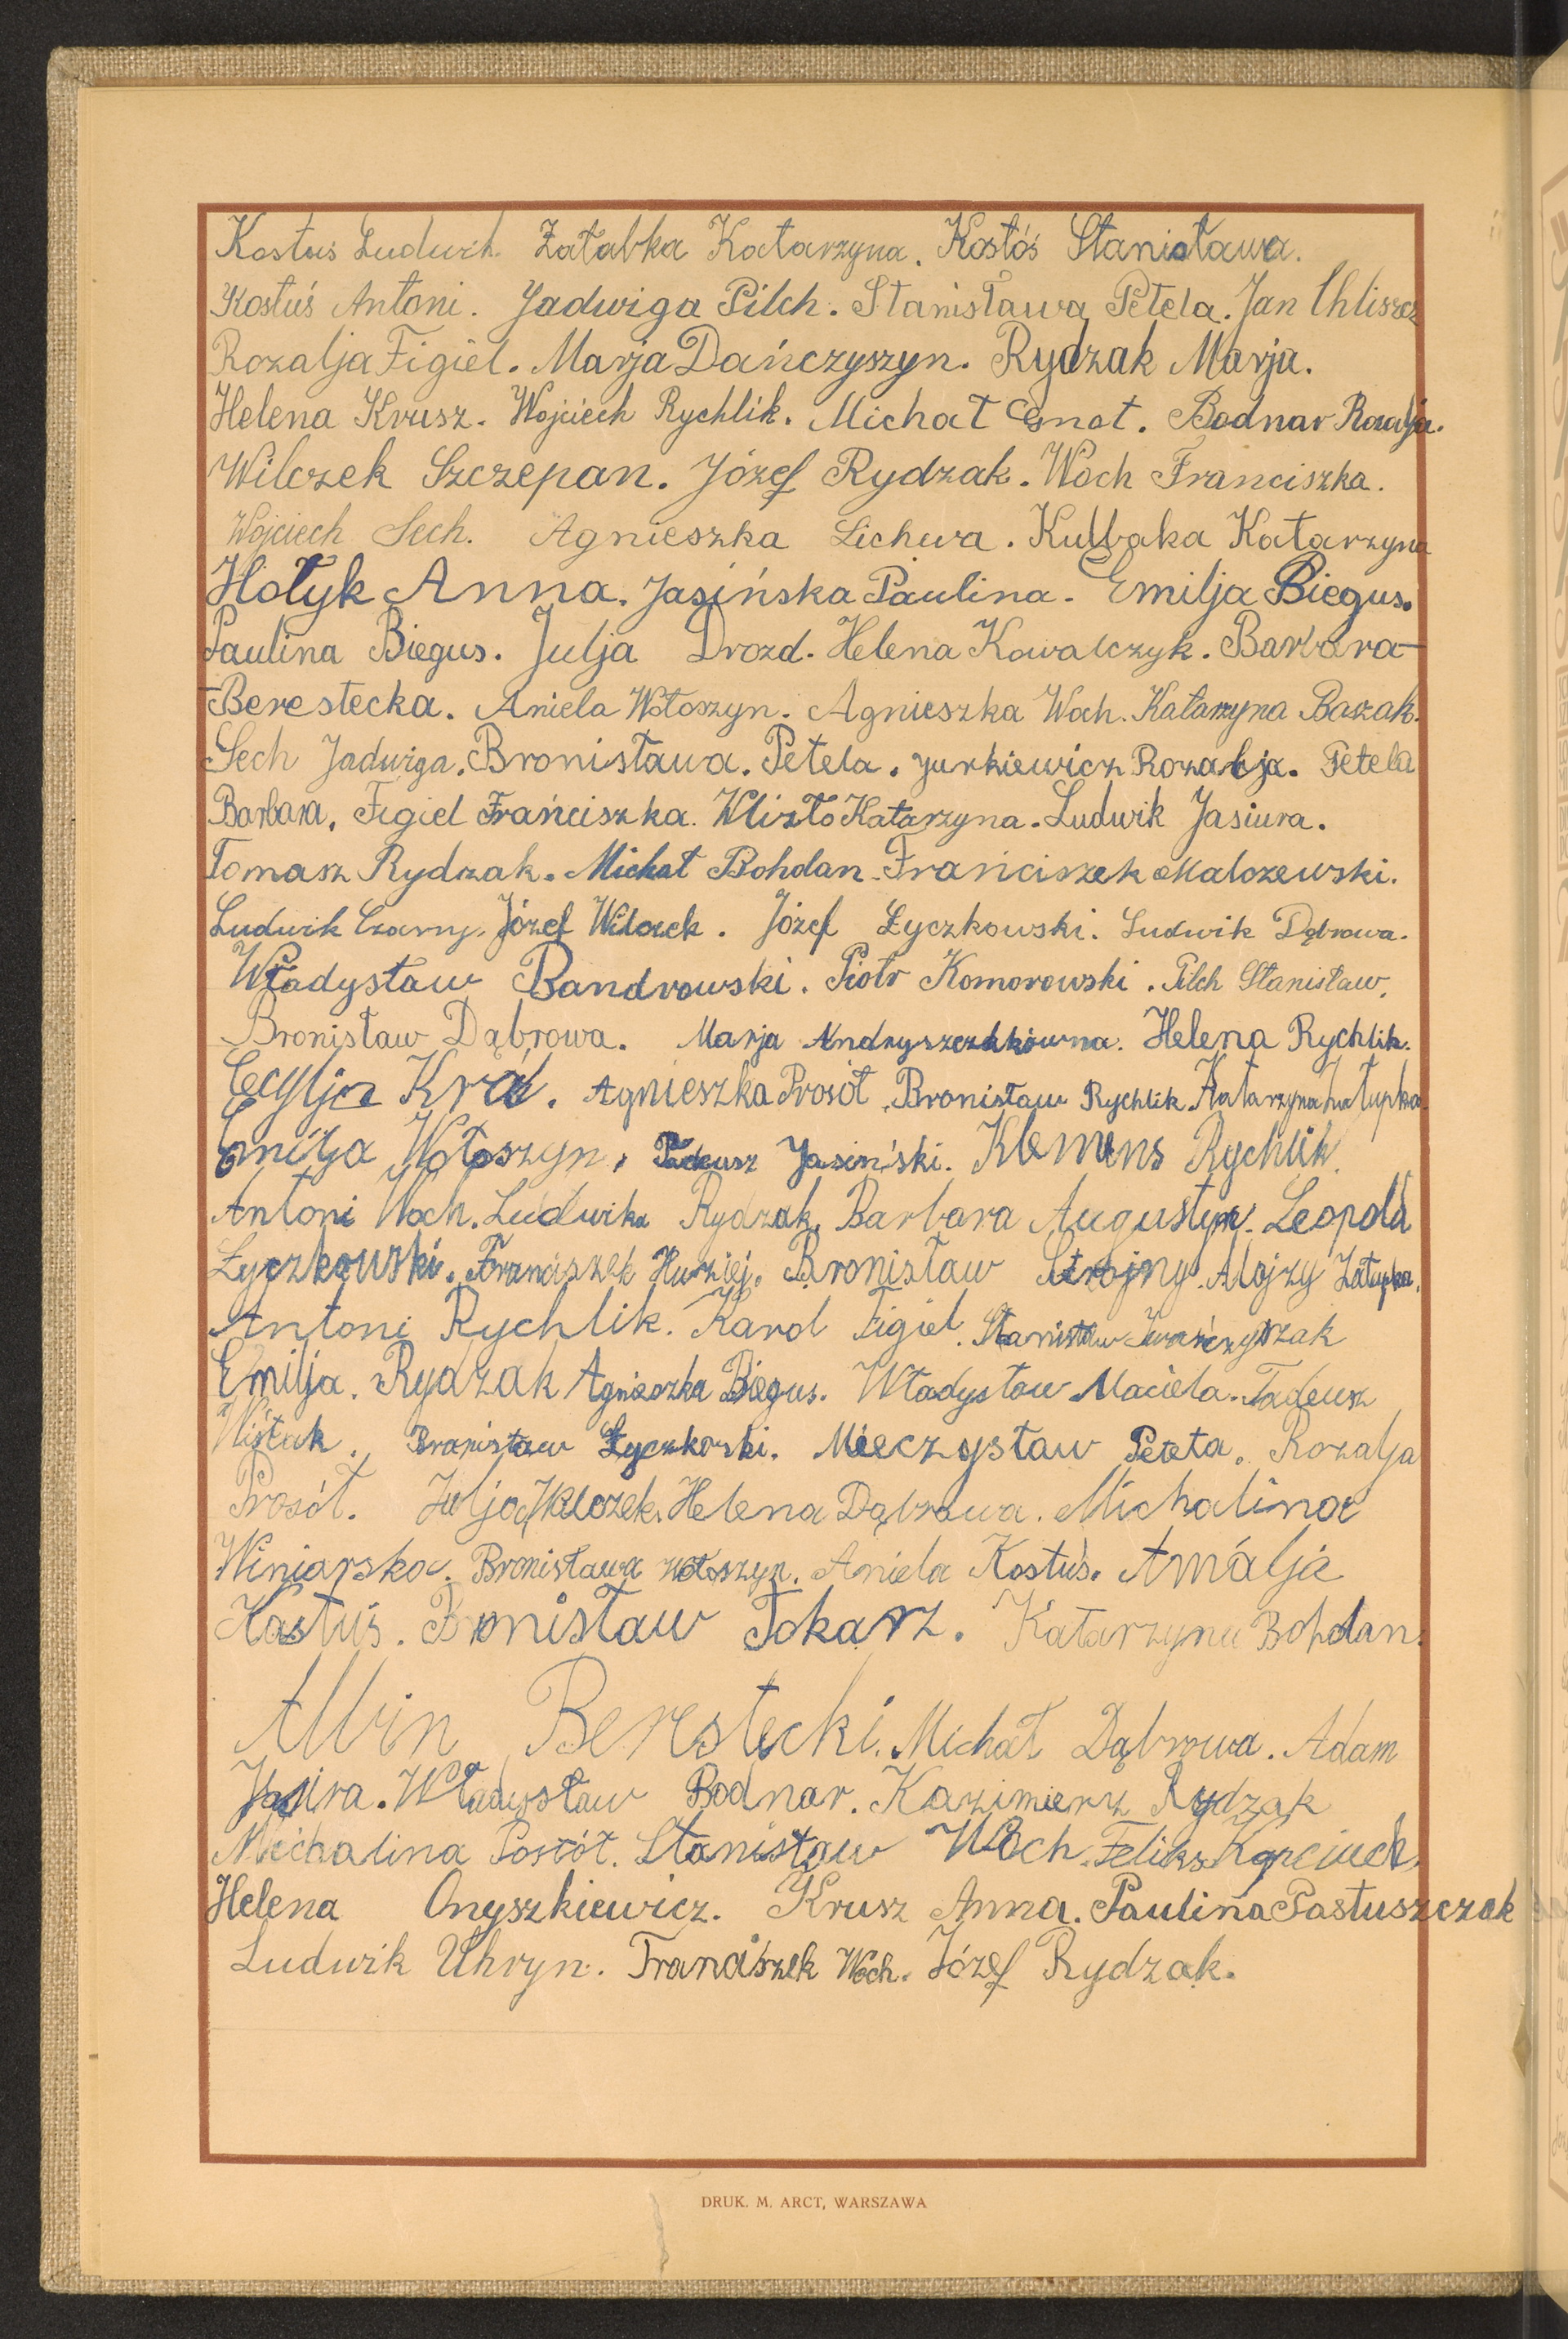 Kostuś Ludwik. Załabka Katarzyna. Kostóś Stanisława.
Kostuś Antoni. Jadwiga Pilch. Stanisława Petela. Jan Chliszcz
Rozalja Figiel. Marja Dańczyszyn. Rydzak Marja.
Helena Krusz. Wojciech Rychlik. Michał Gnot. Bodnar Rozalja.
Wilczek Szczepan. Józef Rydzak. Woch Franciszka.
Wojciech Sech. Agnieszka Lichwa. Kulbaka Katarzyna
Hołyk Anna. Jasińska Paulina. Emilja Biegus.
Paulina Biegus. Julja Drozd. Helena Kowalczyk. Barbara-
-Berestecka. Aniela Wołoszyn. Agnieszka Woch. Katarzyna Bazak.
Sech Jadwiga. Bronisława. Petela. Jurkiewicz Rozalja. Petela
Barbara. Figiel Frańciszka. Wlizło Katarzyna. Ludwik Jasiura.
Tomasz Rydzak. Michał Bohdan. Frańciszek Malczewski.
Ludwik Czarny. Józef Wilczek. Józef Łyczkowski. Ludwik Dąbrowa.
Władysław Bandrowski. Piotr Komorowski. Pilch Stanisław.
Bronisław Dąbrowa. Marja Helena Rychlik.
Cecylja Król. Agnieszka Prosół. Bronisław Rychlik. Katarzyna
Emilja Wołoszyn. Tadeusz Jasiński. Klemens Rychlik.
Antoni Woch. Ludwika Rydzak. Barbara Augustyn. Leopold
Łyczkowski. Franciszek Huziej. Bronisław Strojny. Alojzy Załupka.
Antoni Rychlik. Karol Figiel. Stanisław
Emilja. Rydzak Agnieszka Biegus. Władysław Maciela. Tadeusz
Wiślak. Bronisław Łyczkoski. Mieczysław Peteta. Rozalja
Prosół. Julja Wilczek. Helena Dąbrowa. Michalina
Winiarska. Bronisława Wołoszyn. Aniela Kostuś. Amálja
Kostuś. Bronisław Tokarz. Katarzyna Bohdan.
Albin Berestecki. Michał Dąbrowa. Adam
Jasiura. Władysław Bodnar. Kazimierz Rydzak
Michalina Posół. Stanisław Woch. Feliks Kapciuch.
Helena Onyszkiewicz. Krusz Anna. Paulina Pastuszczak
Ludwik Uhryn. Franciszek Woch. Józef Rydzak.
DRUK. M. ARCT, WARSZAWA